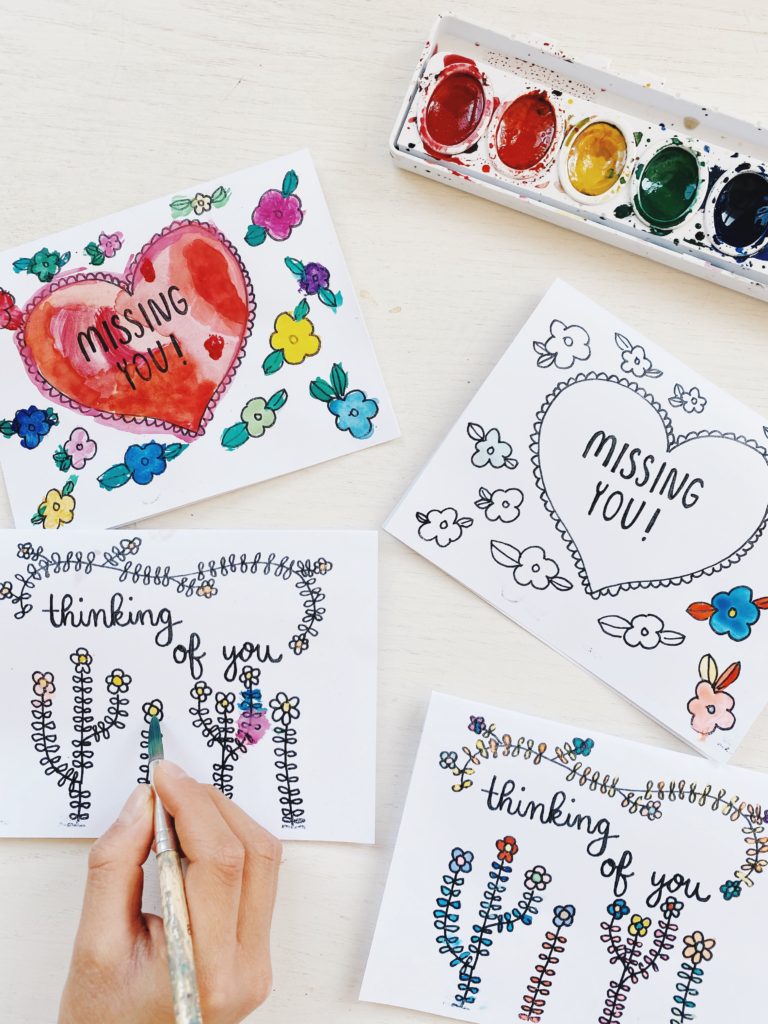 MISSING
YOU!
MISSING
YOU!
thinking
of you
thinking
of you